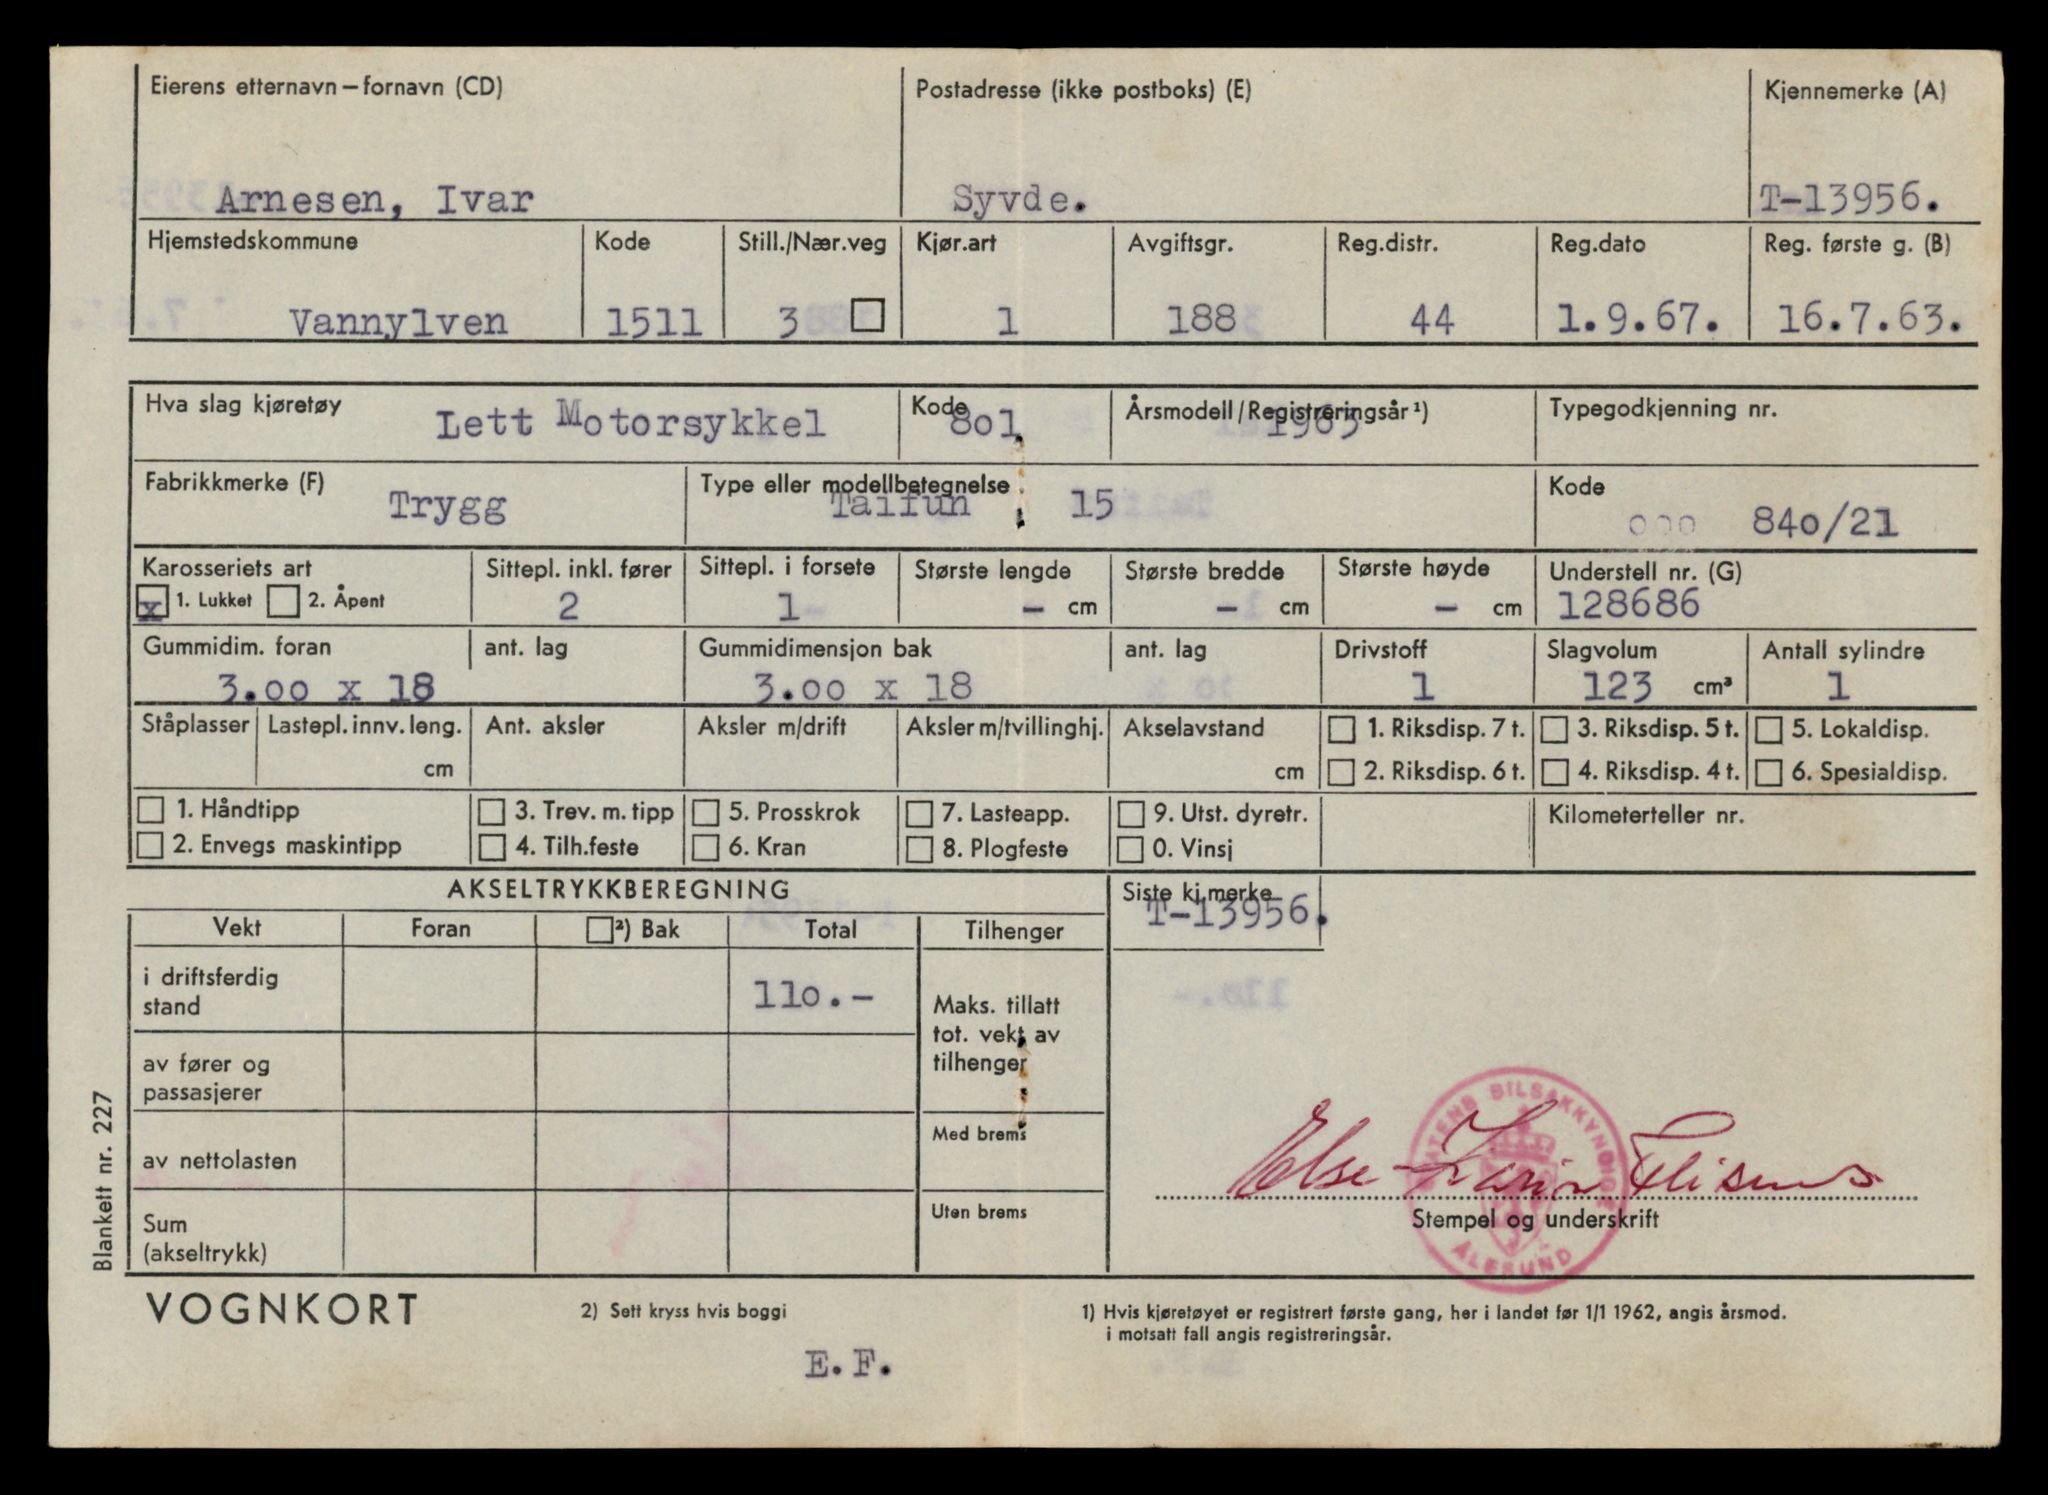 Eierens etternavn – fornavn (CD) Postadresse (ikke postboks) (E) Kjennemerke (A)
Arnesen, Ivar Syvde. T-13956.
Hjemstedskommune Kode Still./Nær.veg Kjør.art Avgiftsgr. Reg.distr. Reg.dato Reg. første g. (B)
Vannylven 1511 3 1 188 44 1.9.67. 16.7.63.
Hva slag kjøretøy Lett Motorsykkel Kode 801. Årsmodell/Registreringsår¹) 1963 Typegodkjenning nr.
Fabrikkmerke (F) Trygg Type eller modellbetegnelse Taifun 15 Kode 000 840/21
Karosseriets art Sittepl. inkl. fører Sittepl. i forsete Største lengde Største bredde Største høyde Understell nr. (G)
x 1. Lukket 2. Åpent 2 1 - cm - cm - cm 128686
Gummidim. foran ant. lag Gummidimensjon bak ant. lag Drivstoff Slagvolum Antall sylindre
3.00 x 18 3.00 x 18 1 123 cm³ 1
Ståplasser Lastepl. innv. leng. Ant. aksler Aksler m/drift Aksler m/tvillinghj. Akselavstand 1. Riksdisp. 7 t. 3. Riksdisp. 5 t. 5. Lokaldisp.
cm cm 2. Riksdisp. 6 t. 4. Riksdisp. 4 t. 6. Spesialdisp.
1. Håndtipp 3. Trev. m. tipp 5. Prosskrok 7. Lasteapp. 9. Utst. dyretr. Kilometerteller nr.
2. Envegs maskintipp 4. Tilh.feste 6. Kran 8. Plogfeste 0. Vinsj
AKSELTRYKKBEREGNING Siste kj.merke
T-13956.
Vekt Foran ²) Bak Total Tilhenger
i driftsferdig
stand 110.-
Maks. tillatt
tot. vekt av
tilhenger
av fører og
passasjerer
Med brems
av nettolasten
Uten brems
Sum
(akseltrykk)
STATENS BILSAKKYNDIGE
ÅLESUND
Else Karin
Stempel og underskrift
Blankett nr. 227
VOGNKORT 2) Sett kryss hvis boggi 1) Hvis kjøretøyet er registrert første gang, her i landet før 1/1 1962, angis årsmod.
i motsatt fall angis registreringsår.
E.F.